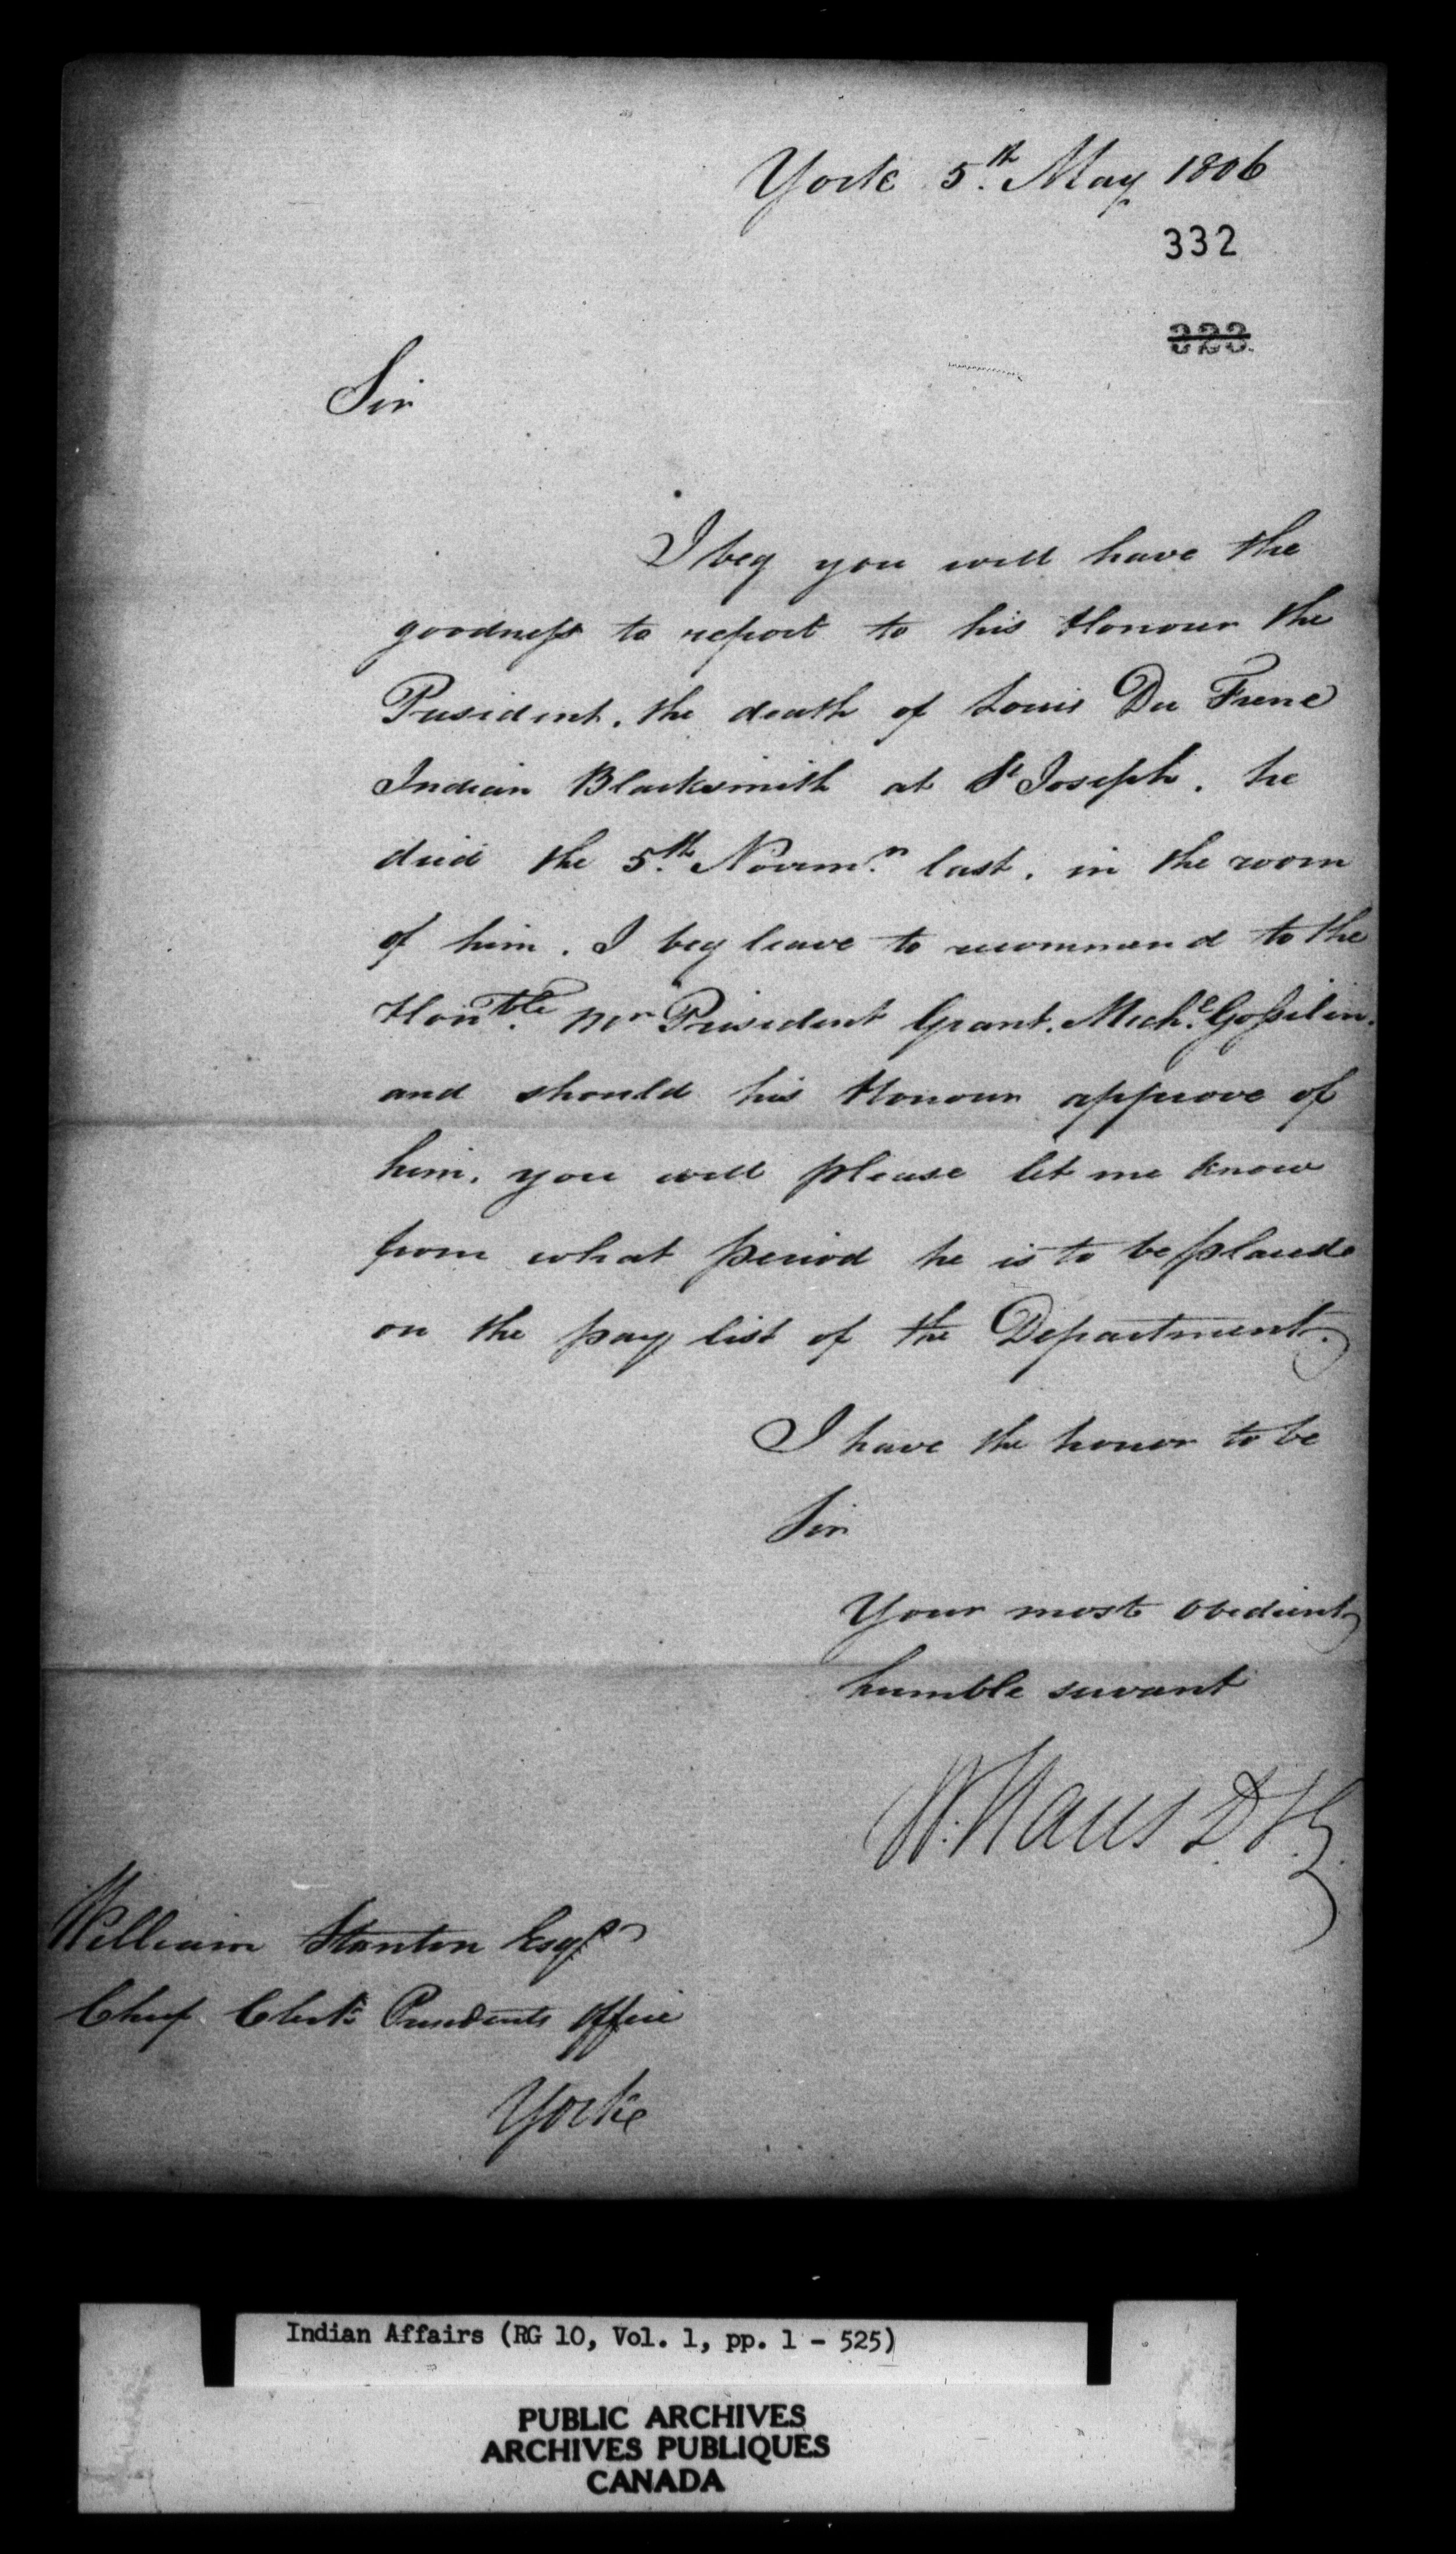 York 5th May 1806
332
323.
Sir
I beg you will have the
goodness to report to his Honour the
President. the death of Louis Du Frene
Indian Blacksmith at St Joseph. he
died the 5th Novemr last. in the room
of him. I beg leave to recommend to the
Honble Mr President Grant. Michl Gosselin.
and should his Honour approve of
him. you will please let me know
from what period he is to be placed
on the pay list of the Department.
I have the honor to be
Sir
Your most obedient
humble servant
W. Claus D.S.G.
William Stanton Esqr
Chief Clerk Presidents Office
York
Indian Affairs (RG 10, Vol. 1, pp. 1 - 525)
PUBLIC ARCHIVES
ARCHIVES PUBLIQUES
CANADA